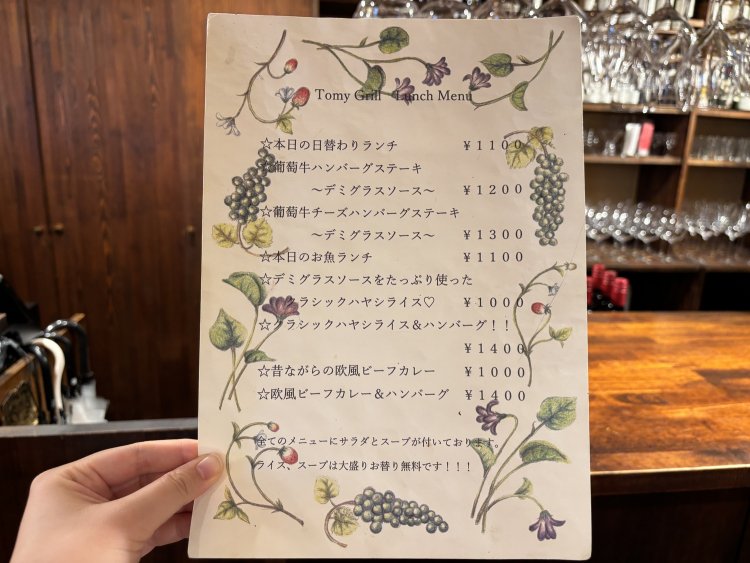 Tomy Grill Lunch Menu
☆本日の日替わりランチ ￥１１００
☆葡萄牛ハンバーグステーキ
～デミグラスソース～ ￥１２００
☆葡萄牛チーズハンバーグステーキ
～デミグラスソース～ ￥１３００
☆本日のお魚ランチ ￥１１００
☆デミグラスソースをたっぷり使った
クラシックハヤシライス♡ ￥１０００
☆クラシックハヤシライス＆ハンバーグ！！
￥１４００
☆昔ながらの欧風ビーフカレー ￥１０００
☆欧風ビーフカレー＆ハンバーグ ￥１４００
全てのメニューにサラダとスープが付いております。
ライス、スープは大盛りお替り無料です！！！